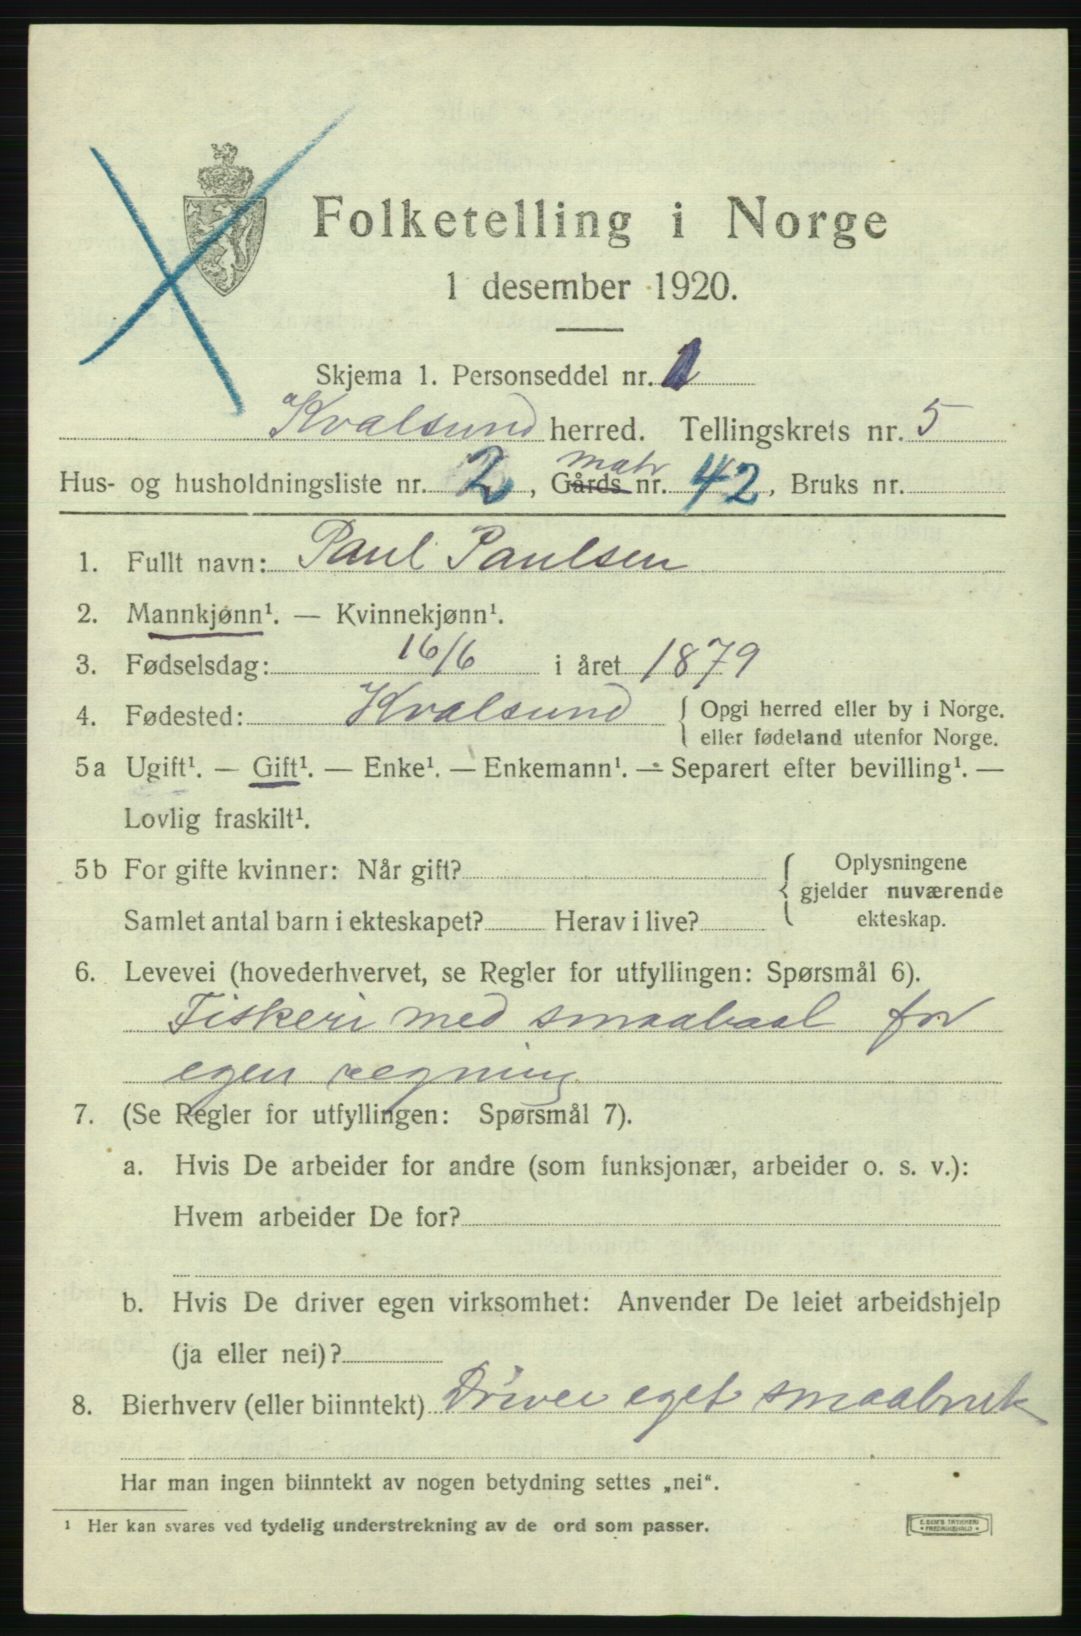 Folketelling i Norge
1 desember 1920.
Skjema 1. Personseddel nr. 1
Kvalsund herred. Tellingskrets nr. 5
matr
Hus- og husholdningsliste nr. 2, Gårds nr. 42, Bruks nr.
1. Fullt navn: Paul Paulsen
2. Mannkjønn¹. — Kvinnekjønn¹.
3. Fødselsdag: 16/6 i året 1879
4. Fødested: Kvalsund { Opgi herred eller by i Norge.
eller fødeland utenfor Norge.
5a Ugift¹. — Gift¹. — Enke¹. — Enkemann¹. — Separert efter bevilling¹. —
Lovlig fraskilt¹.
5b For gifte kvinner: Når gift? { Oplysningene
gjelder nuværende
Samlet antal barn i ekteskapet? Herav i live? ekteskap.
6. Levevei (hovederhvervet, se Regler for utfyllingen: Spørsmål 6).
Fiskeri med smaabaat for
egen regning
7. (Se Regler for utfyllingen: Spørsmål 7).
a. Hvis De arbeider for andre (som funksjonær, arbeider o. s. v.):
Hvem arbeider De for?
b. Hvis De driver egen virksomhet: Anvender De leiet arbeidshjelp
(ja eller nei)?
8. Bierhverv (eller biinntekt) Driver eget smaabruk
Har man ingen biinntekt av nogen betydning settes „nei“.
¹ Her kan svares ved tydelig understrekning av de ord som passer.
E. SEM'S TRYKKERI
FREDRIKSHALD